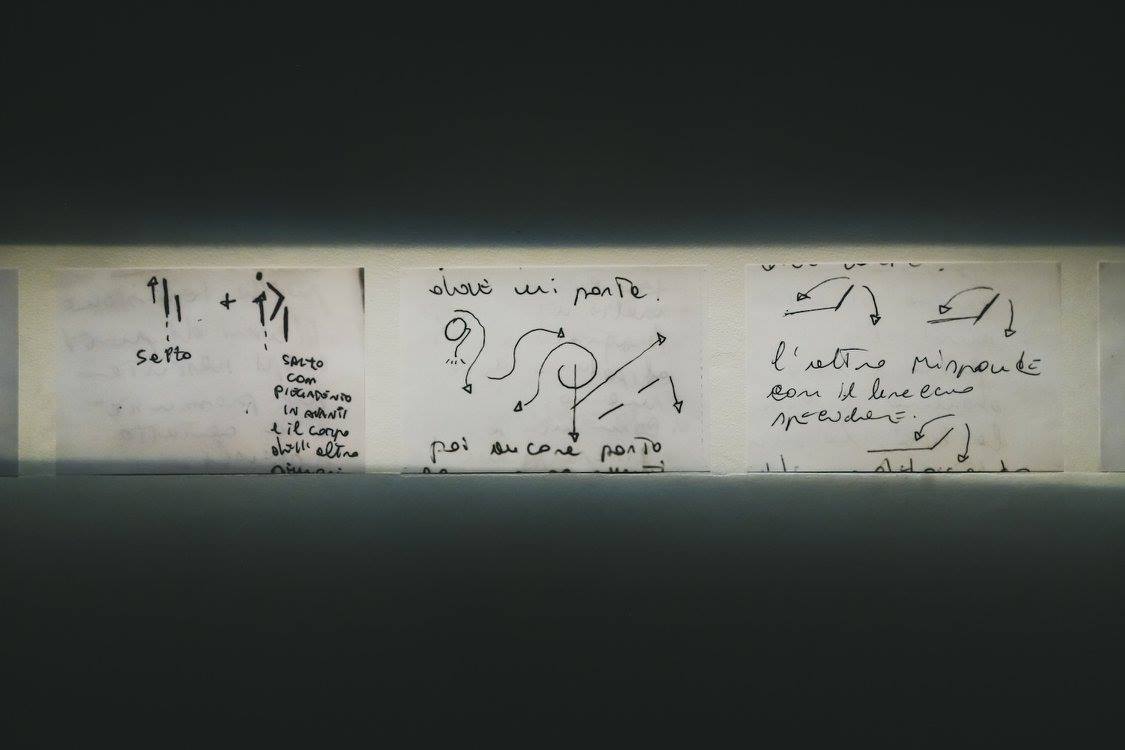 salto
SALTO
COM
PIEGAMENTO
IN AVANTI
e il corpo
dell'altro
dove mi porta.
poi ancora porto
l'altro risponde
con il braccio
speculare.